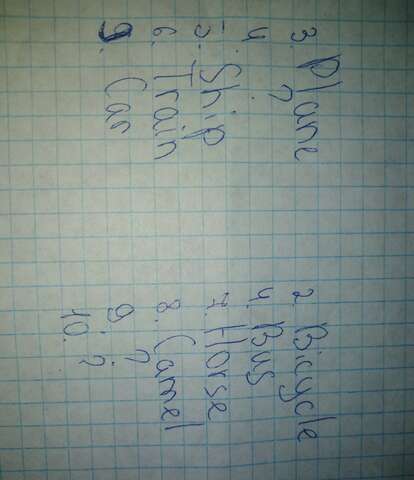 3. Plane
4. ?
5. Ship
6. Train
9. Car
2. Bicycle
4. Bus
7. Horse
8. Camel
9. ?
10. ?